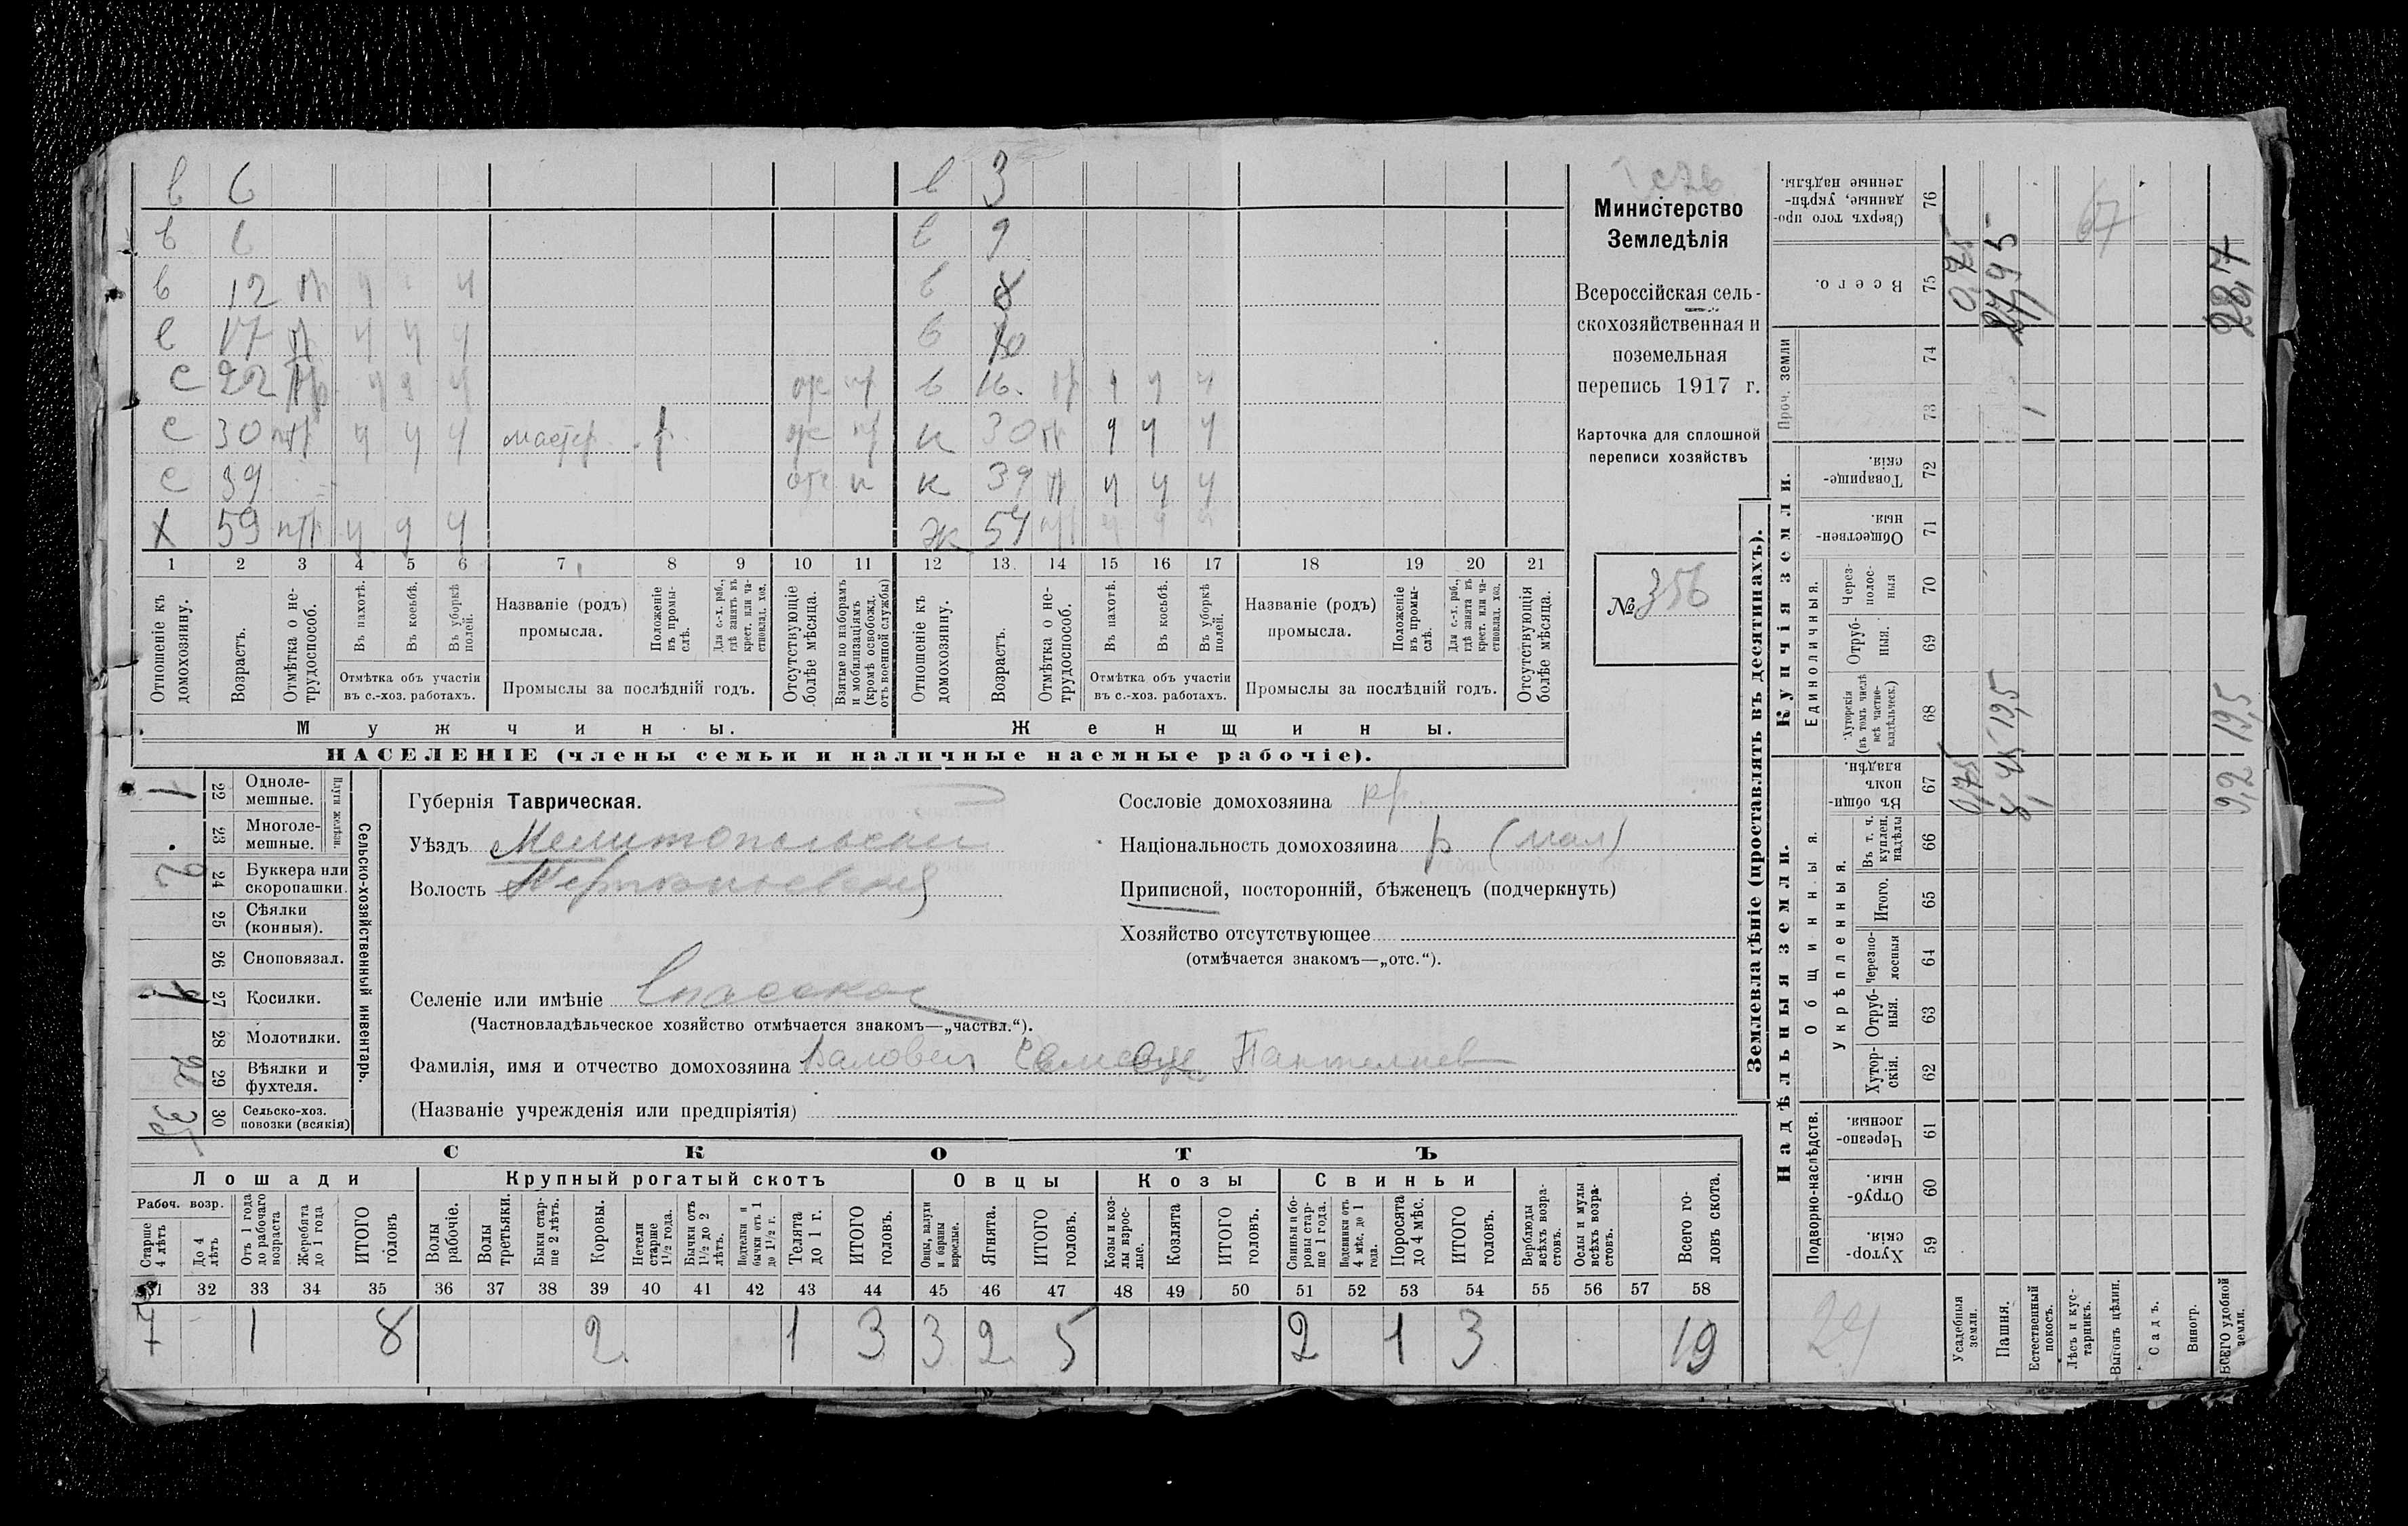 в 6 в 3
в 6 в 9
в 12 в 8
в 17 в 10
с 22 в 16
с 30 мастер к 30
с 39 к 39
х 59 ж 54
1 2 3 4 5 6 7 8 9 10 11 12 13 14 15 16 17 18 19 20 21
Отношеніе къ домохозяину.
Возрастъ.
Отмѣтка о не-
трудоспособ.
Въ пахотѣ.
Въ косьбѣ.
Въ уборкѣ полей.
Отмѣтка объ участіи
въ с.-хоз. работахъ.
Названіе (родъ)
промысла.
Положеніе въ промы-
слѣ.
Для с.-х. раб.,
гдѣ занятъ въ
крест. или ча-
стновлад. хоз.
Промыслы за послѣдній годъ.
Отсутствующіе
болѣе мѣсяца.
Взятые по наборамъ
и мобилизаціямъ
(кромѣ освобожд.
отъ военной службы)
Отношеніе къ
домохозяину.
Возрастъ.
Отмѣтка о не-
трудоспособ.
Въ пахотѣ.
Въ косьбѣ.
Въ уборкѣ полей.
Отмѣтка объ участіи
въ с.-хоз. работахъ.
Названіе (родъ)
промысла.
Положеніе въ промы-
слѣ.
Для с.-х. раб.,
гдѣ занята въ
крест. или ча-
стновлад. хоз.
Промыслы за послѣдній годъ.
Отсутствующія
болѣе мѣсяца.
Мужчины.
Женщины.
НАСЕЛЕНІЕ (члены семьи и наличные наемные рабочіе).
Министерство
Земледѣлія
Всероссійская сель-
скохозяйственная и
поземельная
перепись 1917 г.
Карточка для сплошной
переписи хозяйствъ
№ 356
Сельско-хозяйственный инвентарь.
Плуги желѣзн.
1 22 Одноле-
мешные.
23 Многоле-
мешные.
2 24 Буккера или
скоропашки.
25 Сѣялки
(конныя).
26 Сноповязал.
1 27 Косилки.
28 Молотилки.
29 Вѣялки и
фухтеля.
3 30 Сельско-хоз.
повозки (всякія)
Губернія Таврическая.
Уѣздъ Мелитопольскій
Волость
Селеніе или имѣніе Спасское
(Частновладѣльческое хозяйство отмѣчается знакомъ—„частвл.“).
Фамилія, имя и отчество домохозяина Пантелиев
(Названіе учрежденія или предпріятія)
Сословіе домохозяина кр.
Національность домохозяина р (мал)
Приписной, посторонній, бѣженецъ (подчеркнуть)
Хозяйство отсутствующее
(отмѣчается знакомъ—„отс.“).
СКОТЪ
Лошади Крупный рогатый скотъ Овцы Козы Свиньи
Рабоч. возр.
Старше 4 лѣтъ
До 4 лѣтъ
Отъ 1 года
до рабочаго
возраста
Жеребята
до 1 года
ИТОГО
головъ
Волы
рабочіе.
Волы
третьяки.
Быки стар-
ше 2 лѣтъ.
Коровы.
Нетели
старше
1½ года.
Бычки отъ
1½ до 2
лѣтъ.
Подтелки и
бычки отъ 1
до 1½ г.
Телята
до 1 г.
ИТОГО
головъ.
Овцы, валухи
и бараны
взрослые.
Ягнята.
ИТОГО
головъ.
Козы и коз-
лы взрос-
лые.
Козлята
ИТОГО
головъ.
Свиньи и бо-
ровы стар-
ше 1 года.
Подсвинки отъ
4 мѣс. до 1
года.
Поросята
до 4 мѣс.
ИТОГО
головъ.
Верблюды
всѣхъ возра-
стовъ.
Ослы и мулы
всѣхъ возра-
стовъ.
Всего го-
ловъ скота.
31 32 33 34 35 36 37 38 39 40 41 42 43 44 45 46 47 48 49 50 51 52 53 54 55 56 57 58
7 1 8 2 1 3 3 2 5 2 1 3 19
Землевладѣніе (проставлять въ десятинахъ).
Надѣльныя земли.
Купчія земли.
Проч. земли
Подворно-наслѣдств.
Общинныя.
Укрѣпленныя.
Единоличныя.
Хутор-
скія. 59
Отруб-
ныя. 60
Черезпо-
лосныя. 61
Хутор-
скія. 62
Отруб-
ныя. 63
Черезпо-
лосныя 64
Итого. 65
Въ т. ч.
куплен.
надѣлы 66
Въ общи-
номъ
владѣн. 67
Хуторскія
(въ томъ числѣ
всѣ частно-
владѣльческ.) 68
Отруб-
ныя. 69
Через-
полос-
ныя 70
Обществен-
ныя. 71
Товарище-
скія. 72
73
74
Всего. 75
Сверхъ того про-
данные, укрѣп-
ленные надѣлы. 76
Усадебныя
земли. 0,75 0,75
Пашня. 8,45 19,5 27,95
Естественный
покосъ.
Лѣсъ и кус-
тарникъ.
Выгонъ цѣлин.
Садъ.
Виногр.
ВСЕГО удобной
земли. 9,2 19,5 28,7
67
24